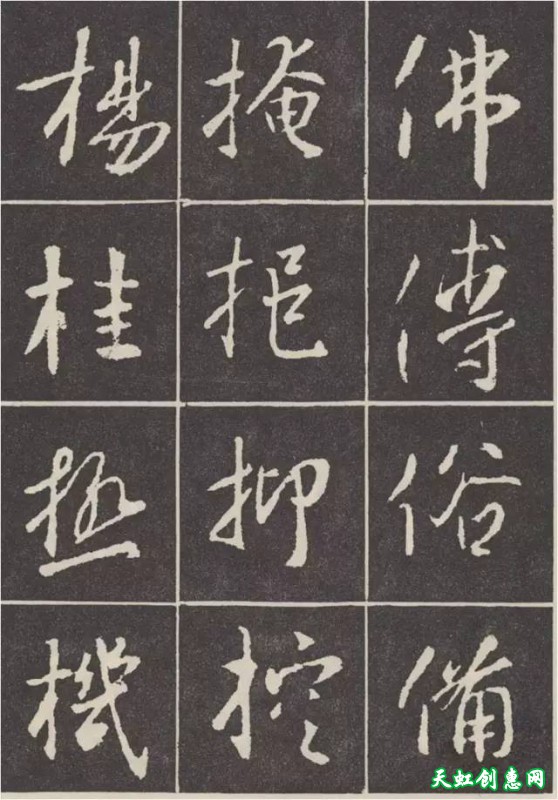 佛傅俗備
掩挹抑控
楊桂極機
天虹创惠网